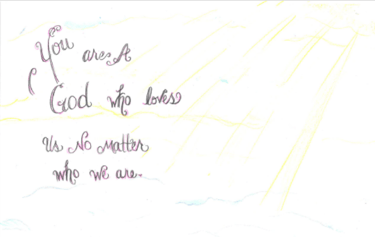 You are A
God who loves
Us No Matter
who we are.